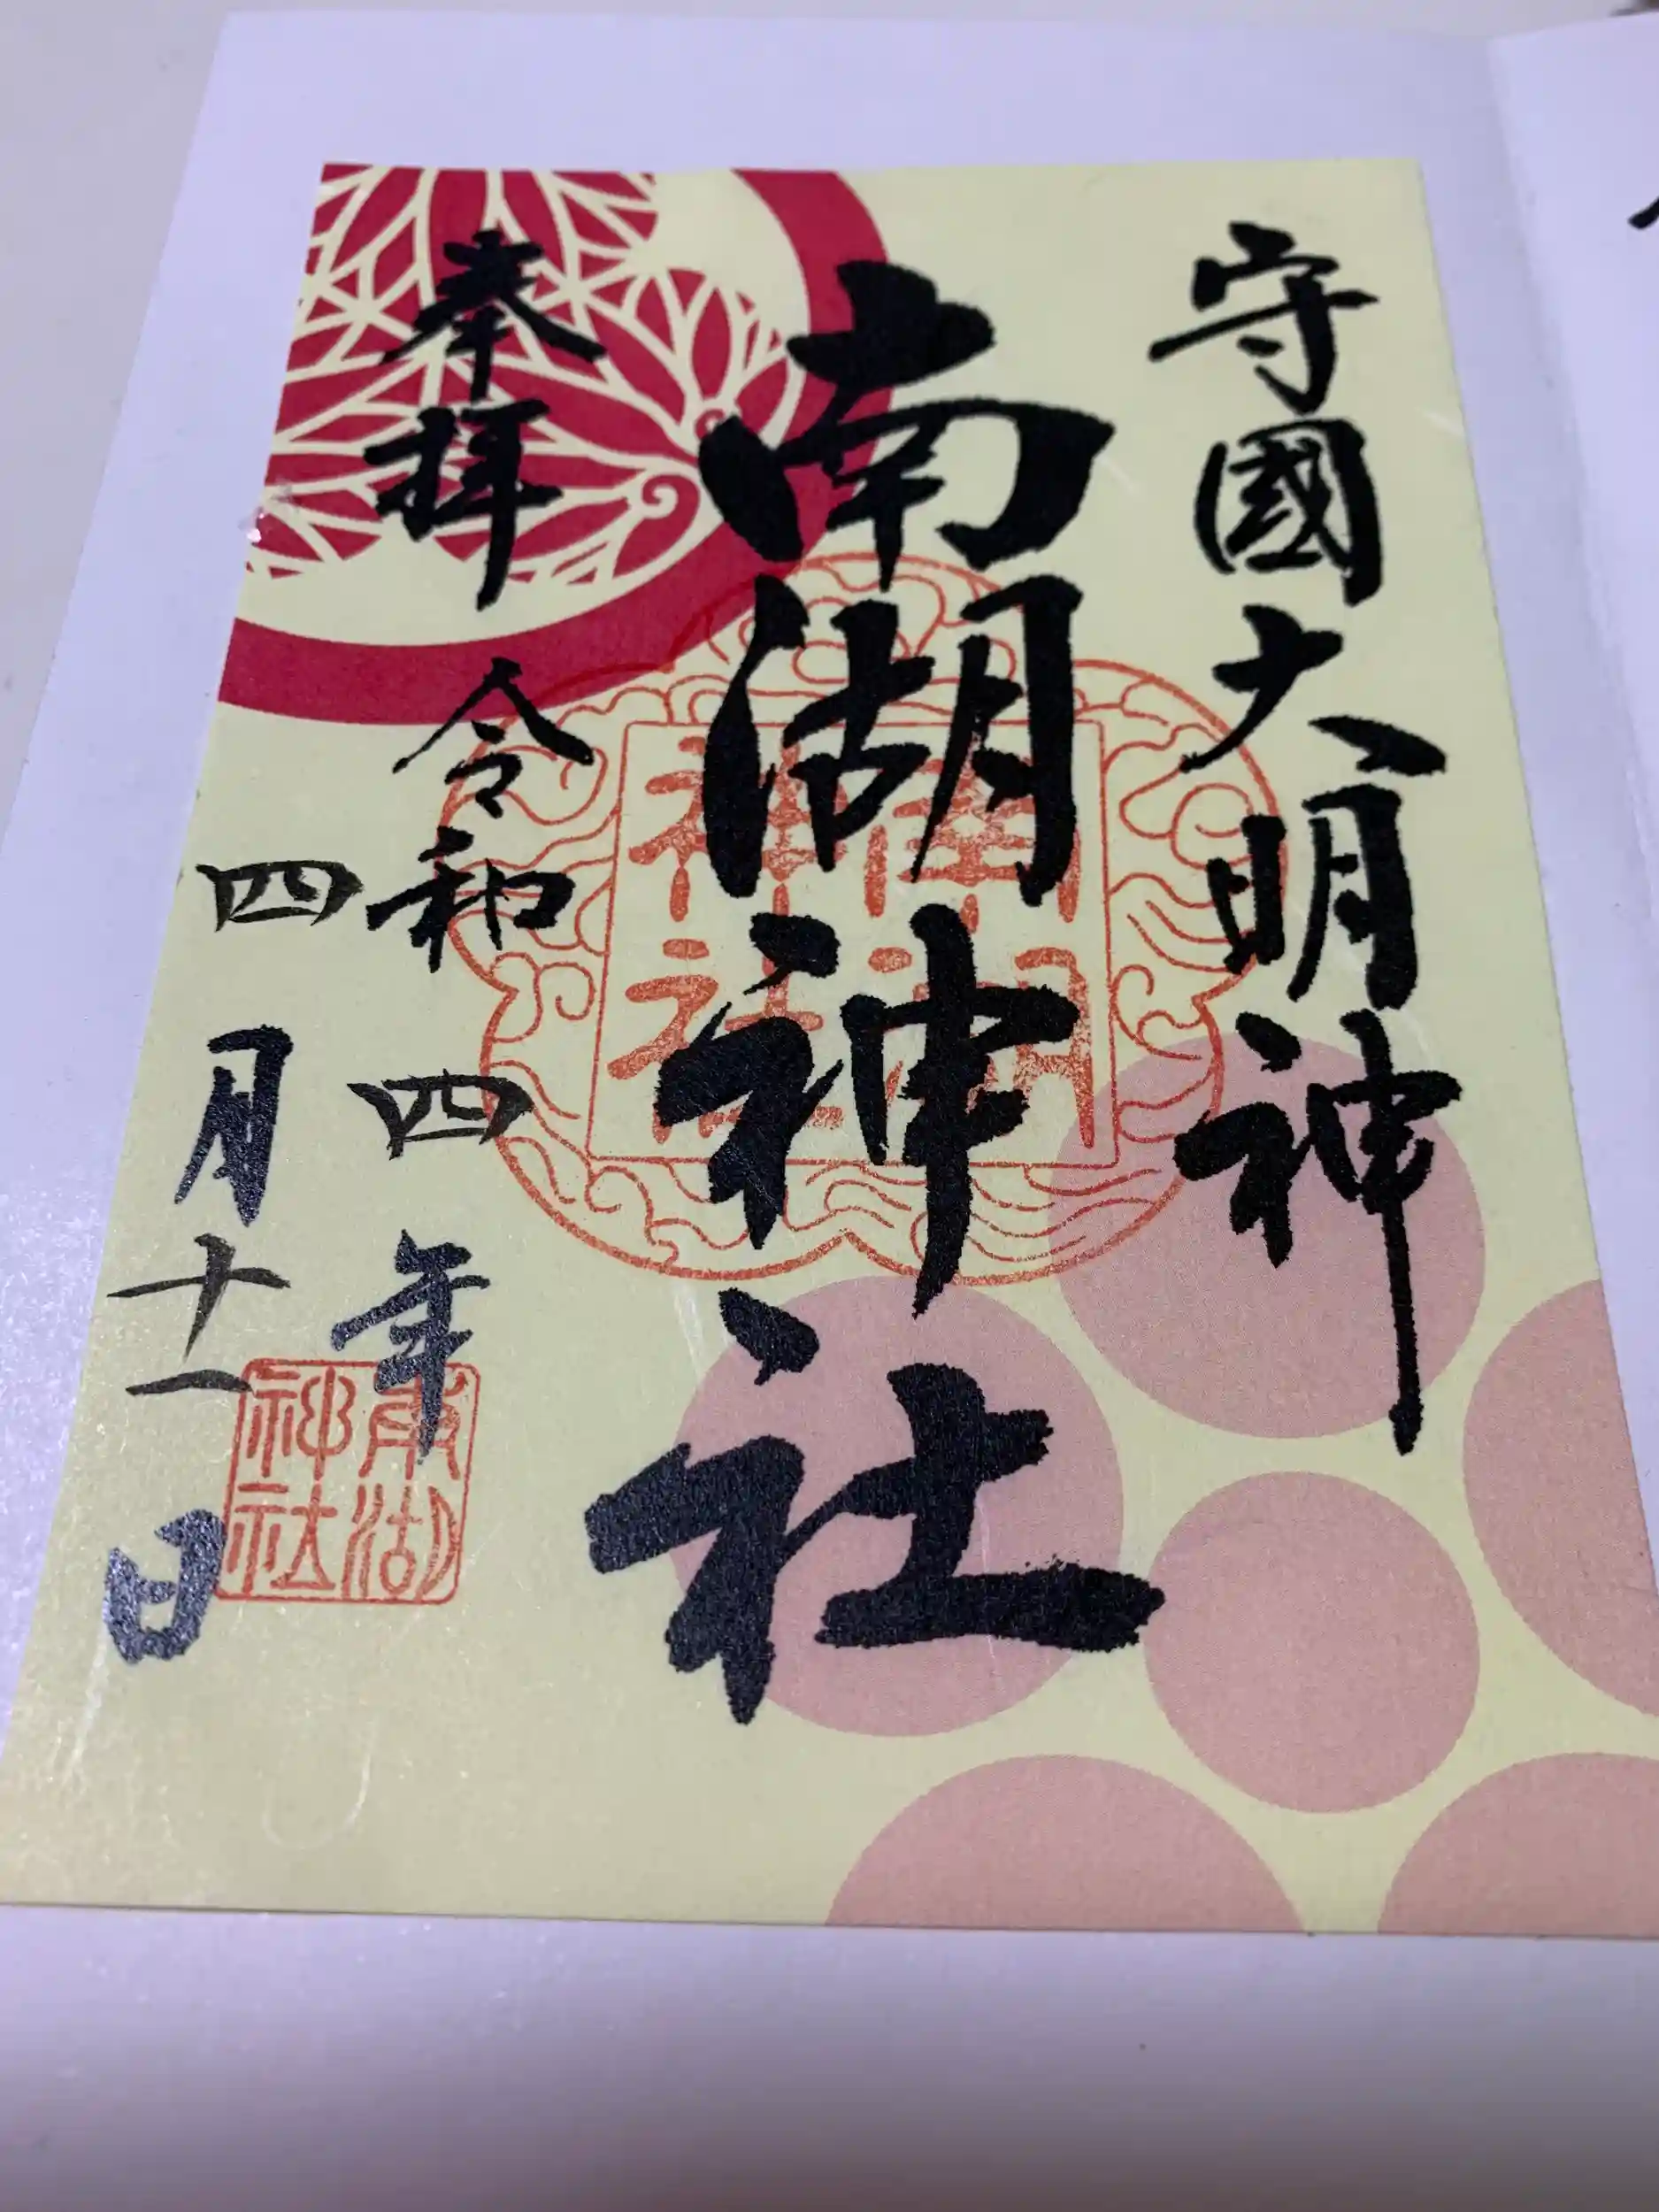 守國大明神
南湖神社
奉拝 令和四年
四月十一日
南湖
神社
南湖
神社